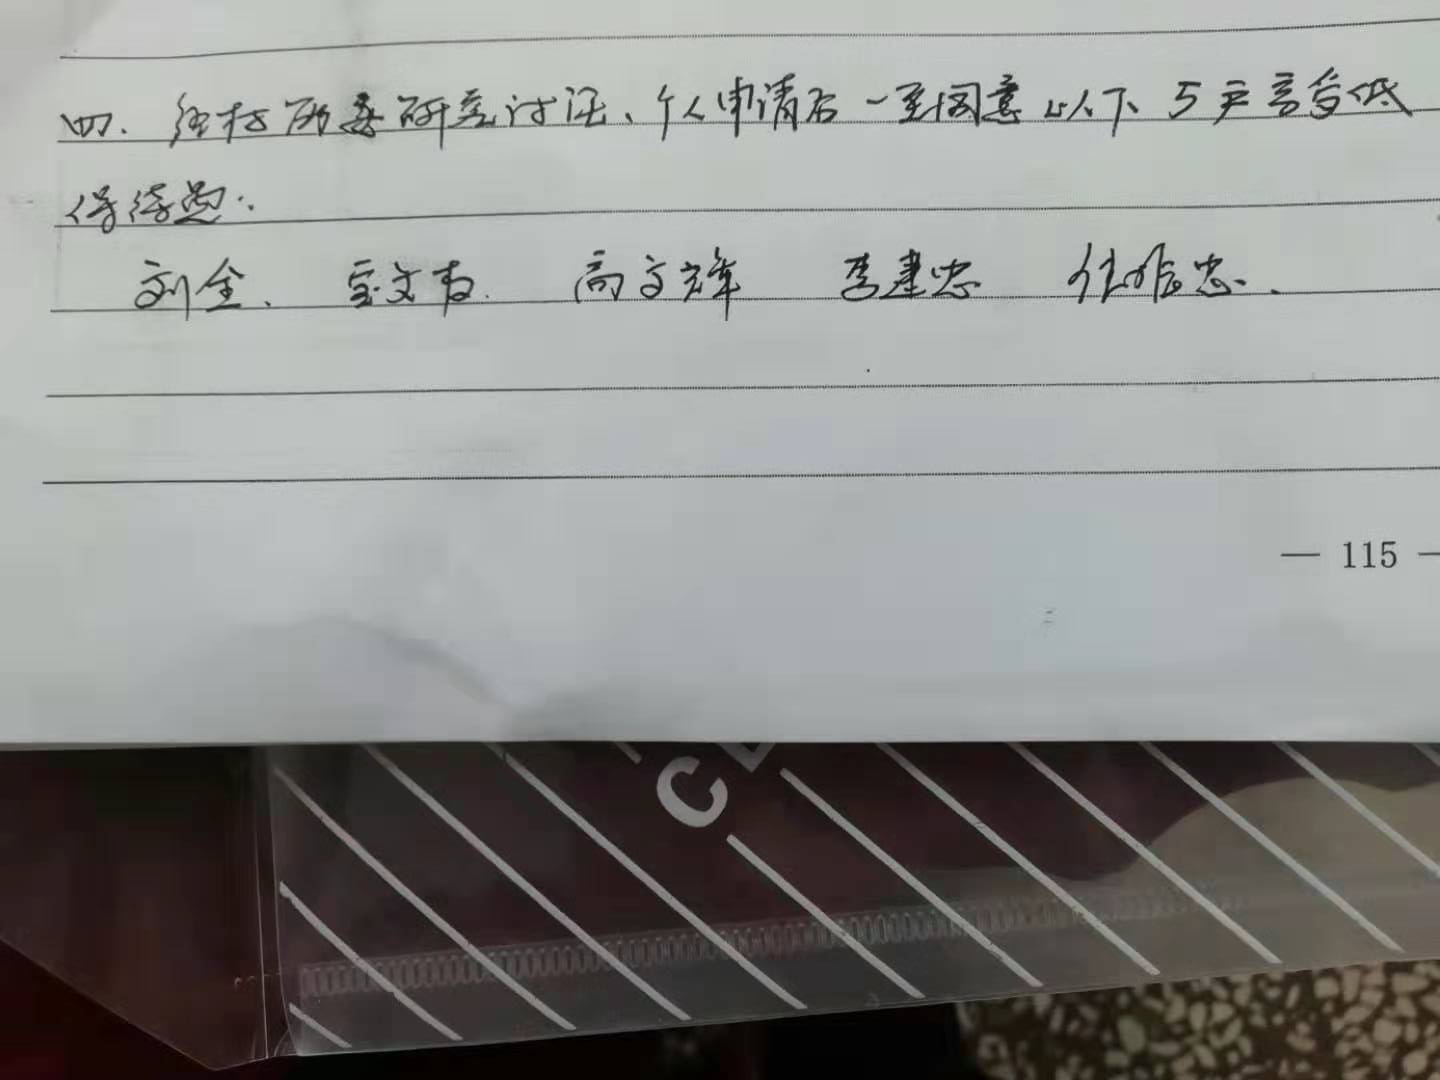 四、经村两委研究讨论、个人申请后一至同意以下5户享受低
保待遇:
刘全、 文 高文辉 李建忠 任维忠.
— 115 —
C